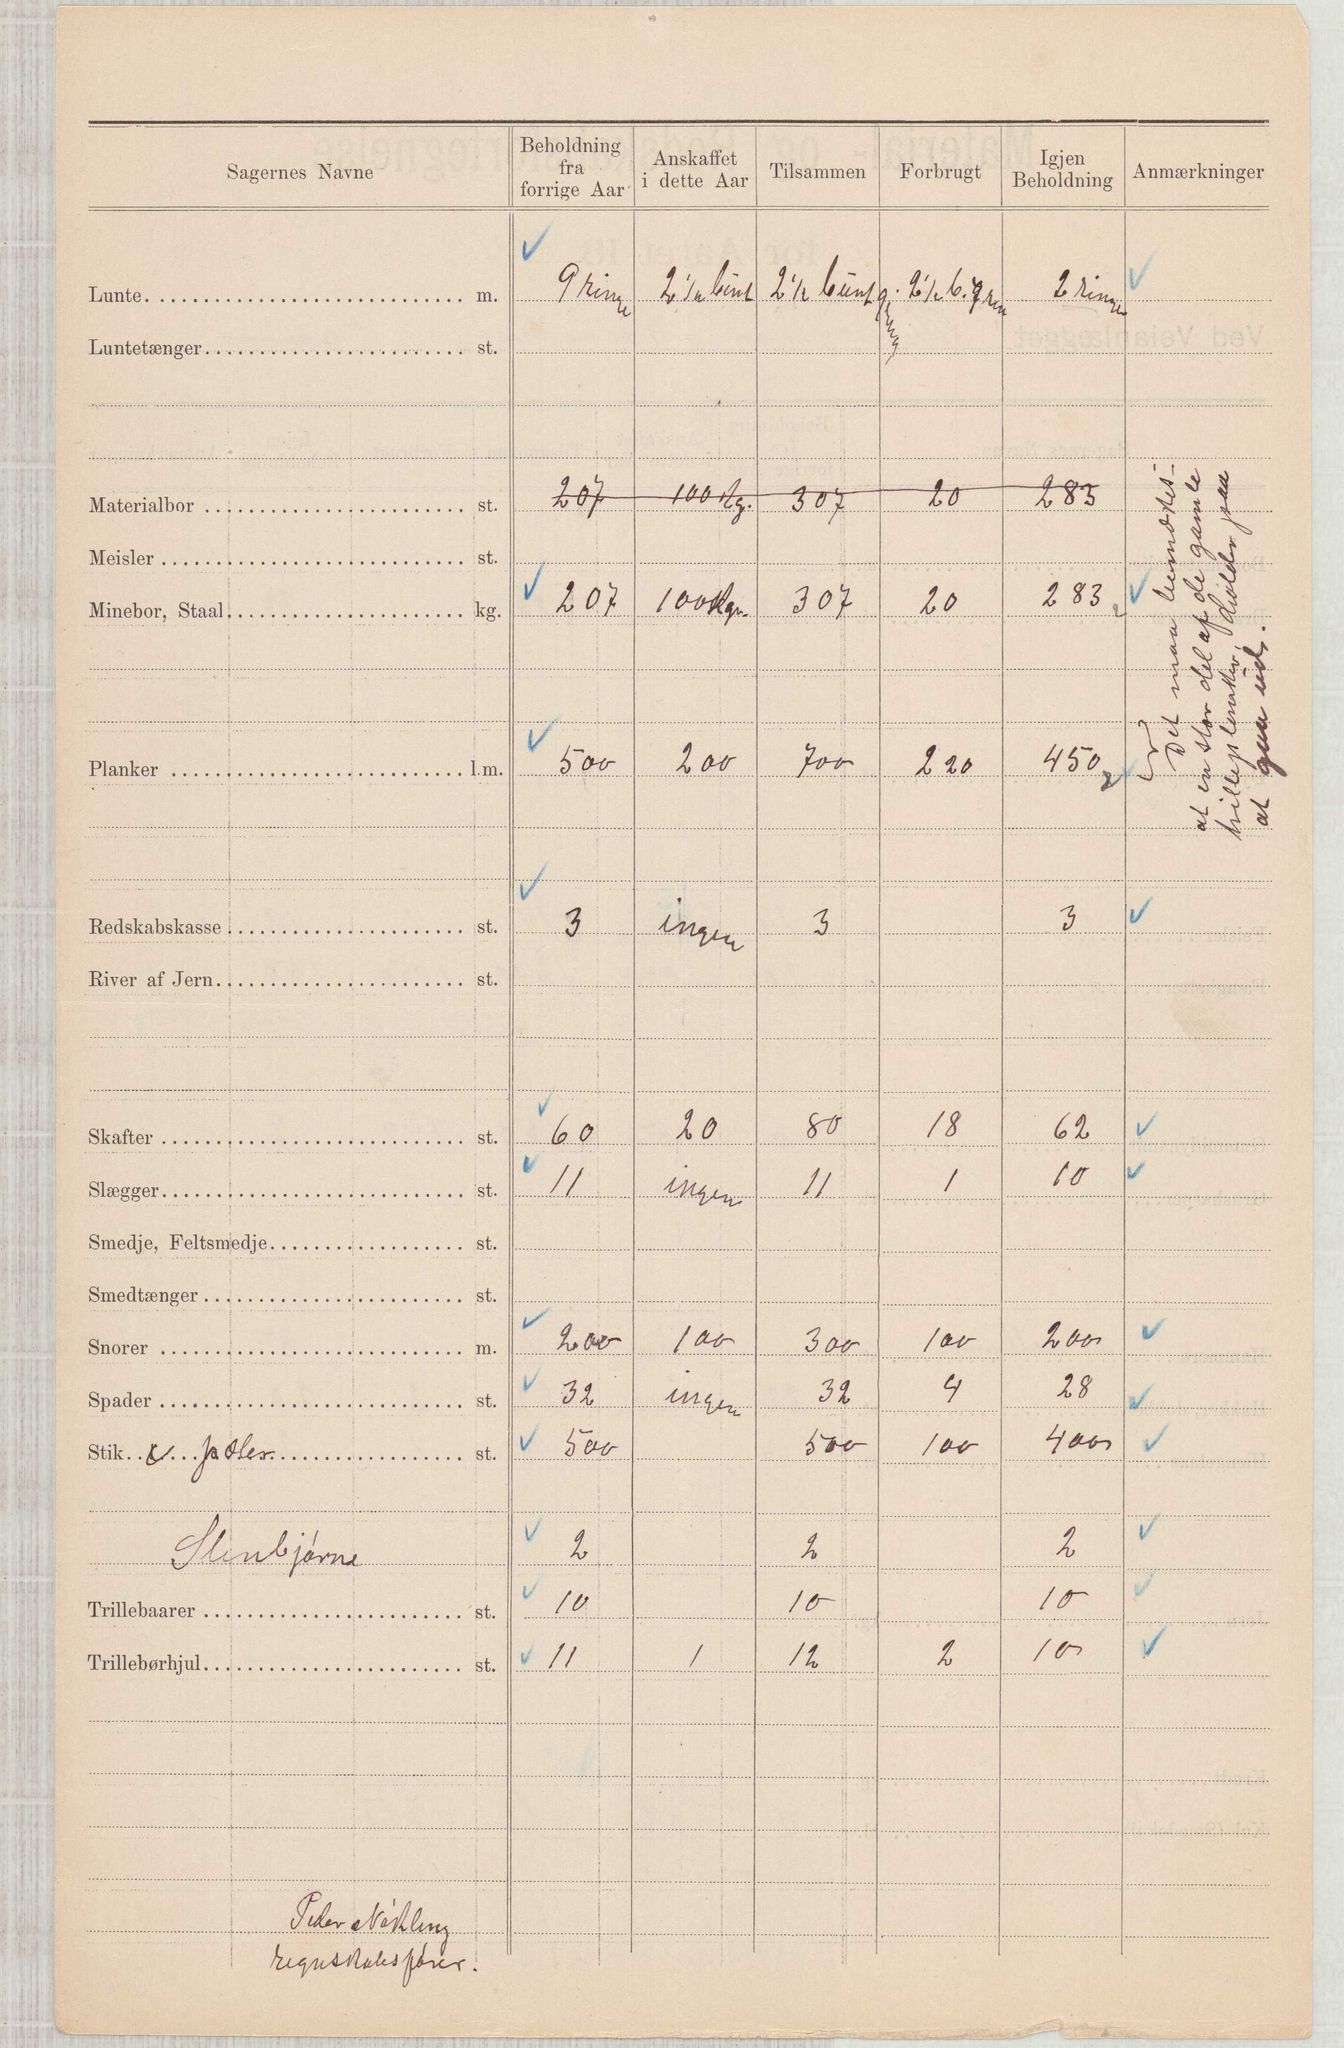 Sagernes Navne Beholdning fra forrige Aar Anskaffet i dette Aar Tilsammen Forbrugt Igjen Beholdning Anmærkninger
Lunte m. 9 ringe 2 1/2 bunt 2 1/2 bunt 2 1/2 b. 2 ringe
Luntetænger st.
Materialbor st. 207 100 Kg. 307 20 283
Meisler st.
Minebor, Staal kg. 207 100 Kgr. 307 20 283
Planker l.m. 500 200 700 220 450
Det maa bemærkes
at en stor del af de gamle
trilleplanker, holder paa
at gaa ud.
Redskabskasse st. 3 ingen 3 3
River af Jern st.
Skafter st. 60 20 80 18 62
Slægger st. 11 ingen 11 1 10
Smedje, Feltsmedje st.
Smedtænger st.
Snorer m. 200 100 300 100 200
Spader st. 32 ingen 32 4 28
Stik & pæler st. 500 500 100 400
Stenbjørne 2 2 2
Trillebaarer st. 10 10 10
Trillebørhjul st. 11 1 12 2 10
Peder Nøkleng
regnskabsfører.